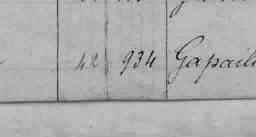 42 934 Gapail